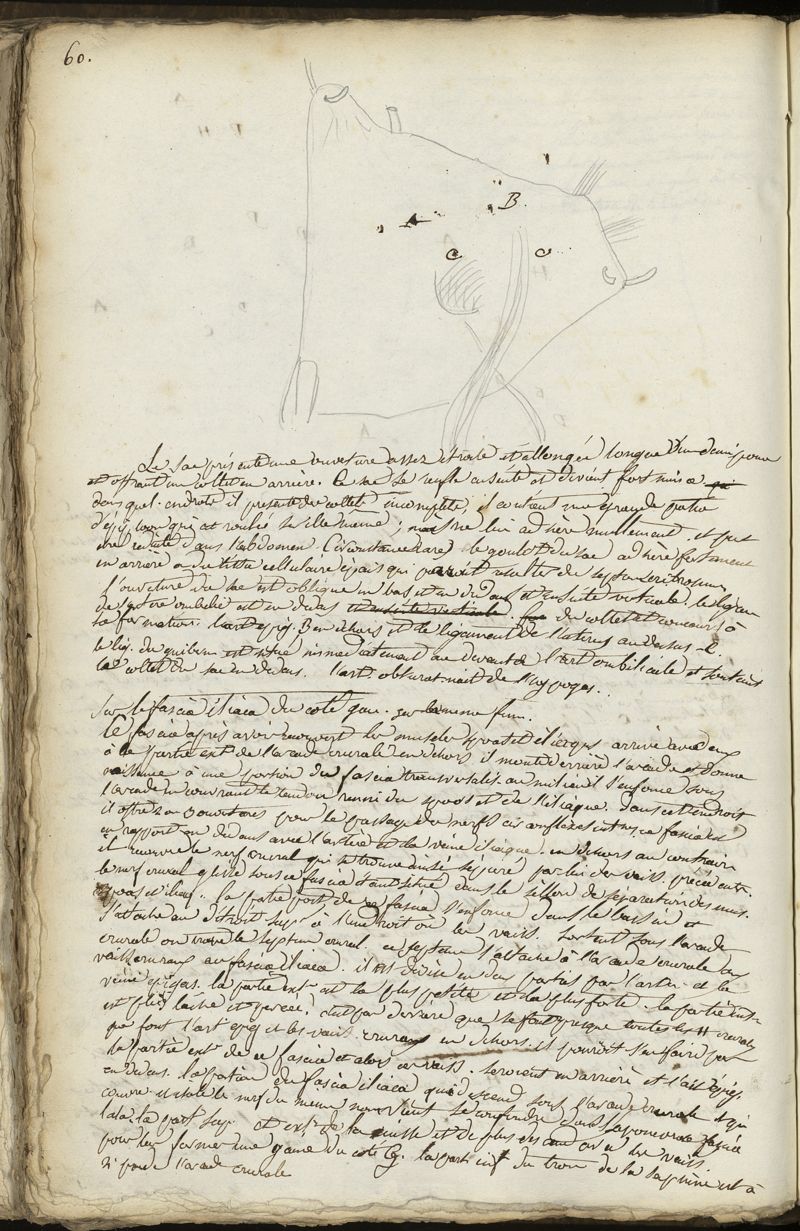 60.
A
B
C
O
Le sac présente une ouverture assez étroite et allongée longue d'un demi pouce
et offrant un collet en arrière. Ce sac se renfle ensuite et devient fort mince
dans quel. endroits il présente des collets incomplets, il contient une grande partie
d'épiploon qui est roulée sur elle même; mais ne lui adhère nullement et peut
être réduite dans l'abdomen (Circonstance rare) le goulot du sac adhère fortement
en arrière à du tissu cellulaire épais qui paroit résulter du septum
L'ouverture du sac est oblique en bas et en dedans et ensuite verticale. le ligam.
de l'artère ombilic. est en dedans du collet et concourt à
sa formation. l'art. épig. B en dehors et le ligament de l'uterus au dessus.
le lig. de est situé immédiatement au devant de l'art. ombilicale et soutient
le collet du sac en dedans. l'art. obturat. nait de l'hypogas.
Sur le fascia iliaca du coté gau. sur la même fem.
Le fascia après avoir recouvert les muscles psoas et iliaques arrive avec eux
à la partie ext. de l'arcade crurale en dehors il monte derrière l'arcade et donne
naissance à une portion du fascia transversalis. au milieu il s'enfonce sous
l'arcade en couvrant le tendon réuni du psoas et de l'iliaque. dans cet endroit
il offre 2 ou 3 ouvertures pour le passage des nerfs circonflexes ce fascia est
en rapport en dedans avec l'artère et la veine iliaque. en dehors au contraire
il recouvre le nerf crural qui se trouve ainsi séparé par lui des vaiss. précédents.
le nerf crural glisse sous ce fascia étant situé dans le sillon de séparation des mus.
psoas et iliaq. la partie post. de ce fascia s'enfonce dans le bassin et
s'attache au détroit supr. à l'endroit où les vaiss. sortent sous l'arcade
crurale on trouve le septum crural. ce septum s'attache à l'arcade crurale aux
vaiss. cruraux au fascia iliaca. il est divisé en deux parties par l'artère et la
veine épigas. la partie ext. est la plus petite et la plus forte. la partie int.
est plus lache et percée. c'est par derrière que se font presque toutes les H crurales
que font l'art. épig. et les vaiss. cruraux en dehors. il pourroit s'en faire par
la partie ext. de ce fascia et alors ces vaiss. seroient en arrière et l'art. épig.
en dedans. la portion du fascia iliaca qui descend sous l'arcade crurale et qui
couvre et isole le nerf du même nom vient se confondre dans l'aponevrose
à la partie sup. et ext. de la cuisse et de plus
pour leur former une gaine du coté G. la part. inf. du tronc de la saphène est à
2 pouces l'arcade crurale